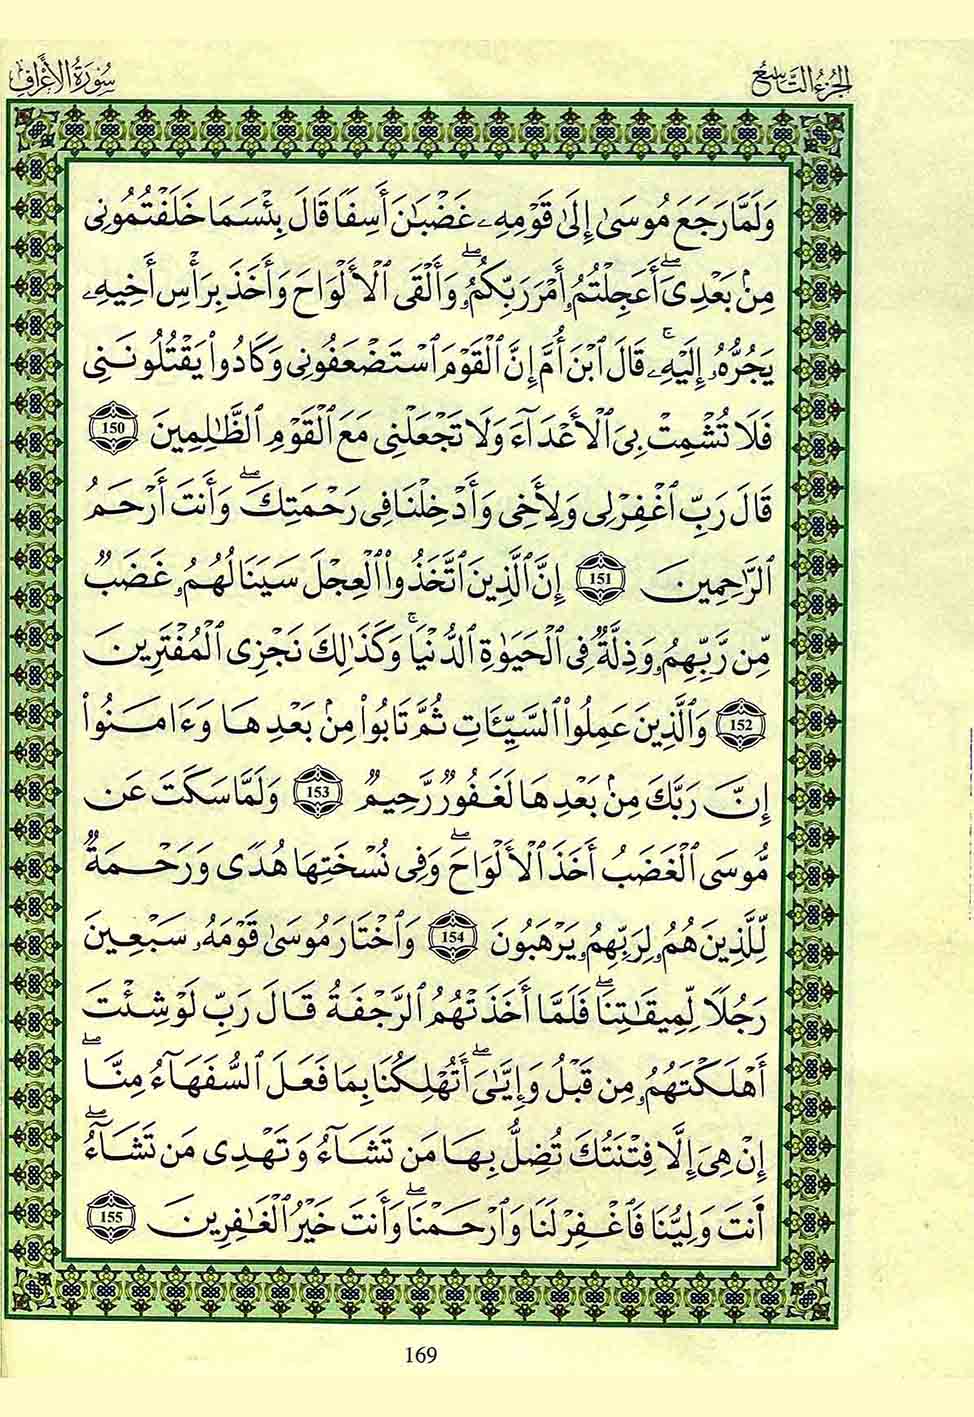 الجزء التاسع
سورة الأعراف
وَلَمَّا رَجَعَ مُوسَىٰٓ إِلَىٰ قَوْمِهِۦ غَضْبَٰنَ أَسِفًا قَالَ بِئْسَمَا خَلَفْتُمُونِى
مِنۢ بَعْدِىٓ ۖ أَعَجِلْتُمُۥٓ أَمْرَ رَبِّكُمُۥ ۖ وَأَلْقَى ٱلْأَلْوَاحَ وَأَخَذَ بِرَأْسِ أَخِيهِۦ
يَجُرُّهُۥٓ إِلَيْهِۦ ۚ قَالَ ٱبْنَ أُمَّ إِنَّ ٱلْقَوْمَ ٱسْتَضْعَفُونِى وَكَادُوا۟ يَقْتُلُونَنِى
فَلَا تُشْمِتْ بِىَ ٱلْأَعْدَآءَ وَلَا تَجْعَلْنِى مَعَ ٱلْقَوْمِ ٱلظَّٰلِمِينَ 150
قَالَ رَبِّ ٱغْفِرْ لِى وَلِأَخِى وَأَدْخِلْنَا فِى رَحْمَتِكَ ۖ وَأَنتَ أَرْحَمُ
ٱلرَّٰحِمِينَ 151 إِنَّ ٱلَّذِينَ ٱتَّخَذُوا۟ ٱلْعِجْلَ سَيَنَالُهُمُۥ غَضَبٌ
مِّن رَّبِّهِمُۥ وَذِلَّةٌ فِى ٱلْحَيَوٰةِ ٱلدُّنْيَا ۚ وَكَذَٰلِكَ نَجْزِى ٱلْمُفْتَرِينَ
152 وَٱلَّذِينَ عَمِلُوا۟ ٱلسَّيِّـَٔاتِ ثُمَّ تَابُوا۟ مِنۢ بَعْدِهَا وَءَامَنُوٓا۟
إِنَّ رَبَّكَ مِنۢ بَعْدِهَا لَغَفُورٌ رَّحِيمٌ 153 وَلَمَّا سَكَتَ عَن
مُّوسَى ٱلْغَضَبُ أَخَذَ ٱلْأَلْوَاحَ ۖ وَفِى نُسْخَتِهَا هُدًى وَرَحْمَةٌ
لِّلَّذِينَ هُمُۥ لِرَبِّهِمُۥ يَرْهَبُونَ 154 وَٱخْتَارَ مُوسَىٰ قَوْمَهُۥ سَبْعِينَ
رَجُلًا لِّمِيقَٰتِنَا ۖ فَلَمَّآ أَخَذَتْهُمُ ٱلرَّجْفَةُ قَالَ رَبِّ لَوْ شِئْتَ
أَهْلَكْتَهُمُۥ مِن قَبْلُ وَإِيَّٰىَ ۖ أَتُهْلِكُنَا بِمَا فَعَلَ ٱلسُّفَهَآءُ مِنَّآ ۖ
إِنْ هِىَ إِلَّا فِتْنَتُكَ تُضِلُّ بِهَا مَن تَشَآءُ وَتَهْدِى مَن تَشَآءُ ۖ
أَنتَ وَلِيُّنَا فَٱغْفِرْ لَنَا وَٱرْحَمْنَا ۖ وَأَنتَ خَيْرُ ٱلْغَٰفِرِينَ 155
169